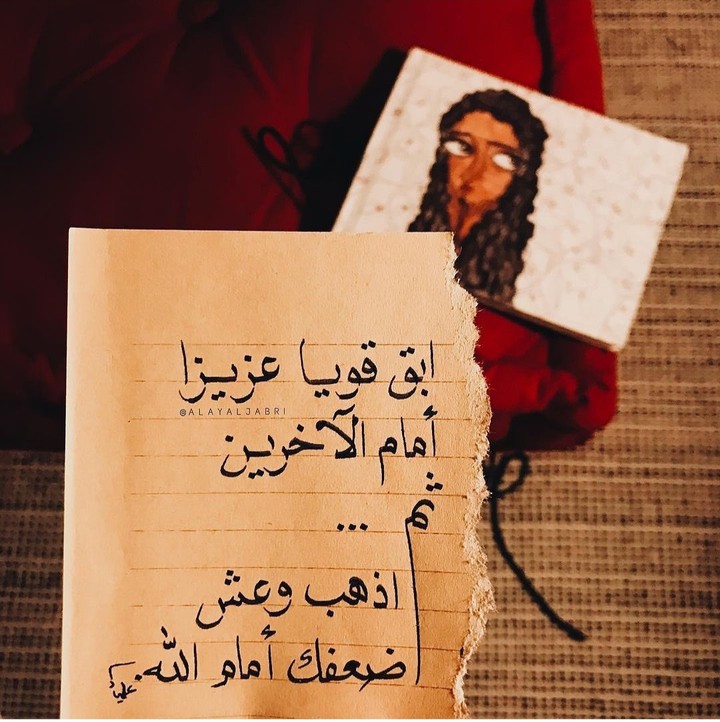 ابق قويا عزيزا
@ALAYALJABRI
أمام الآخرين
ثم ...
اذهب وعش
ضعفك أمام الله.
علياء